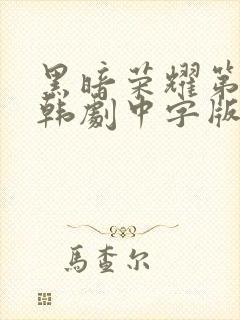 黑暗荣耀第
韩劇中字版
馬查尔